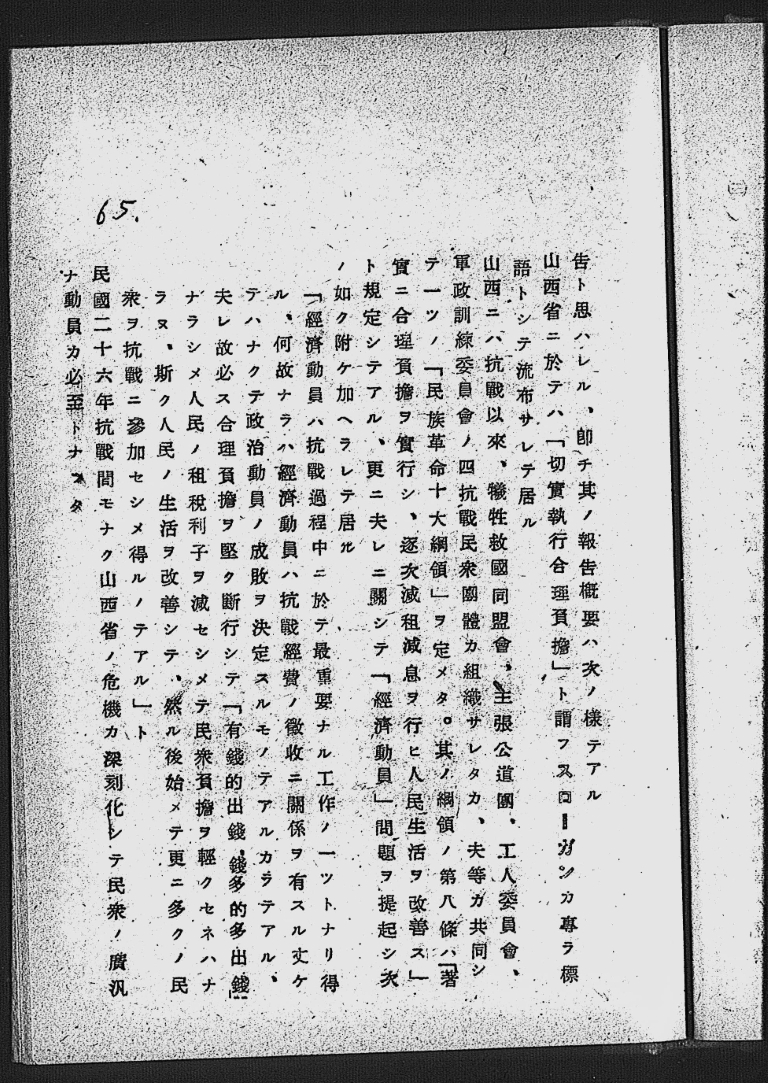 65.
告ト思ハレル、卽チ其ノ報告槪要ハ次ノ樣テアル
山西省ニ於テハ「切實執行合理負擔」ト謂フスローガンカ專ラ標
語トシテ流布サレテ居ル
山西ニハ抗戰以來、犧牲救國同盟會、主張公道團、工人委員會、
軍政訓練委員會ノ四抗戰民衆團體カ組織サレタカ、夫等カ共同シ
テ一ツノ「民族革命十大綱領」ヲ定メタ。其ノ綱領ノ第八條ハ「著
實ニ合理負擔ヲ實行シ、逐次減租減息ヲ行ヒ人民生活ヲ改善ス」
ト規定シテアル、更ニ夫レニ關シテ「經濟動員」問題ヲ提起シ次
ノ如ク附ケ加ヘラレテ居ル
「經濟動員ハ抗戰過程中ニ於テ最重要ナル工作ノ一ツトナリ得
ル、何故ナラハ經濟動員ハ抗戰經費ノ徵收ニ關係ヲ有スル丈ケ
テハナクテ政治動員ノ成敗ヲ決定スルモノテアルカラテアル、
夫レ故必ス合理負擔ヲ堅ク斷行シテ「有錢的出錢、錢多的多出錢」
ナラシメ人民ノ租稅利子ヲ減セシメテ民衆負擔ヲ輕クセネハナ
ラヌ、斯ク人民ノ生活ヲ改善シテ、然ル後始メテ更ニ多クノ民
衆ヲ抗戰ニ參加セシメ得ルノテアル」ト
民國二十六年抗戰間モナク山西省ノ危機カ深刻化シテ民衆ノ廣汎
ナ動員カ必至トナツタ